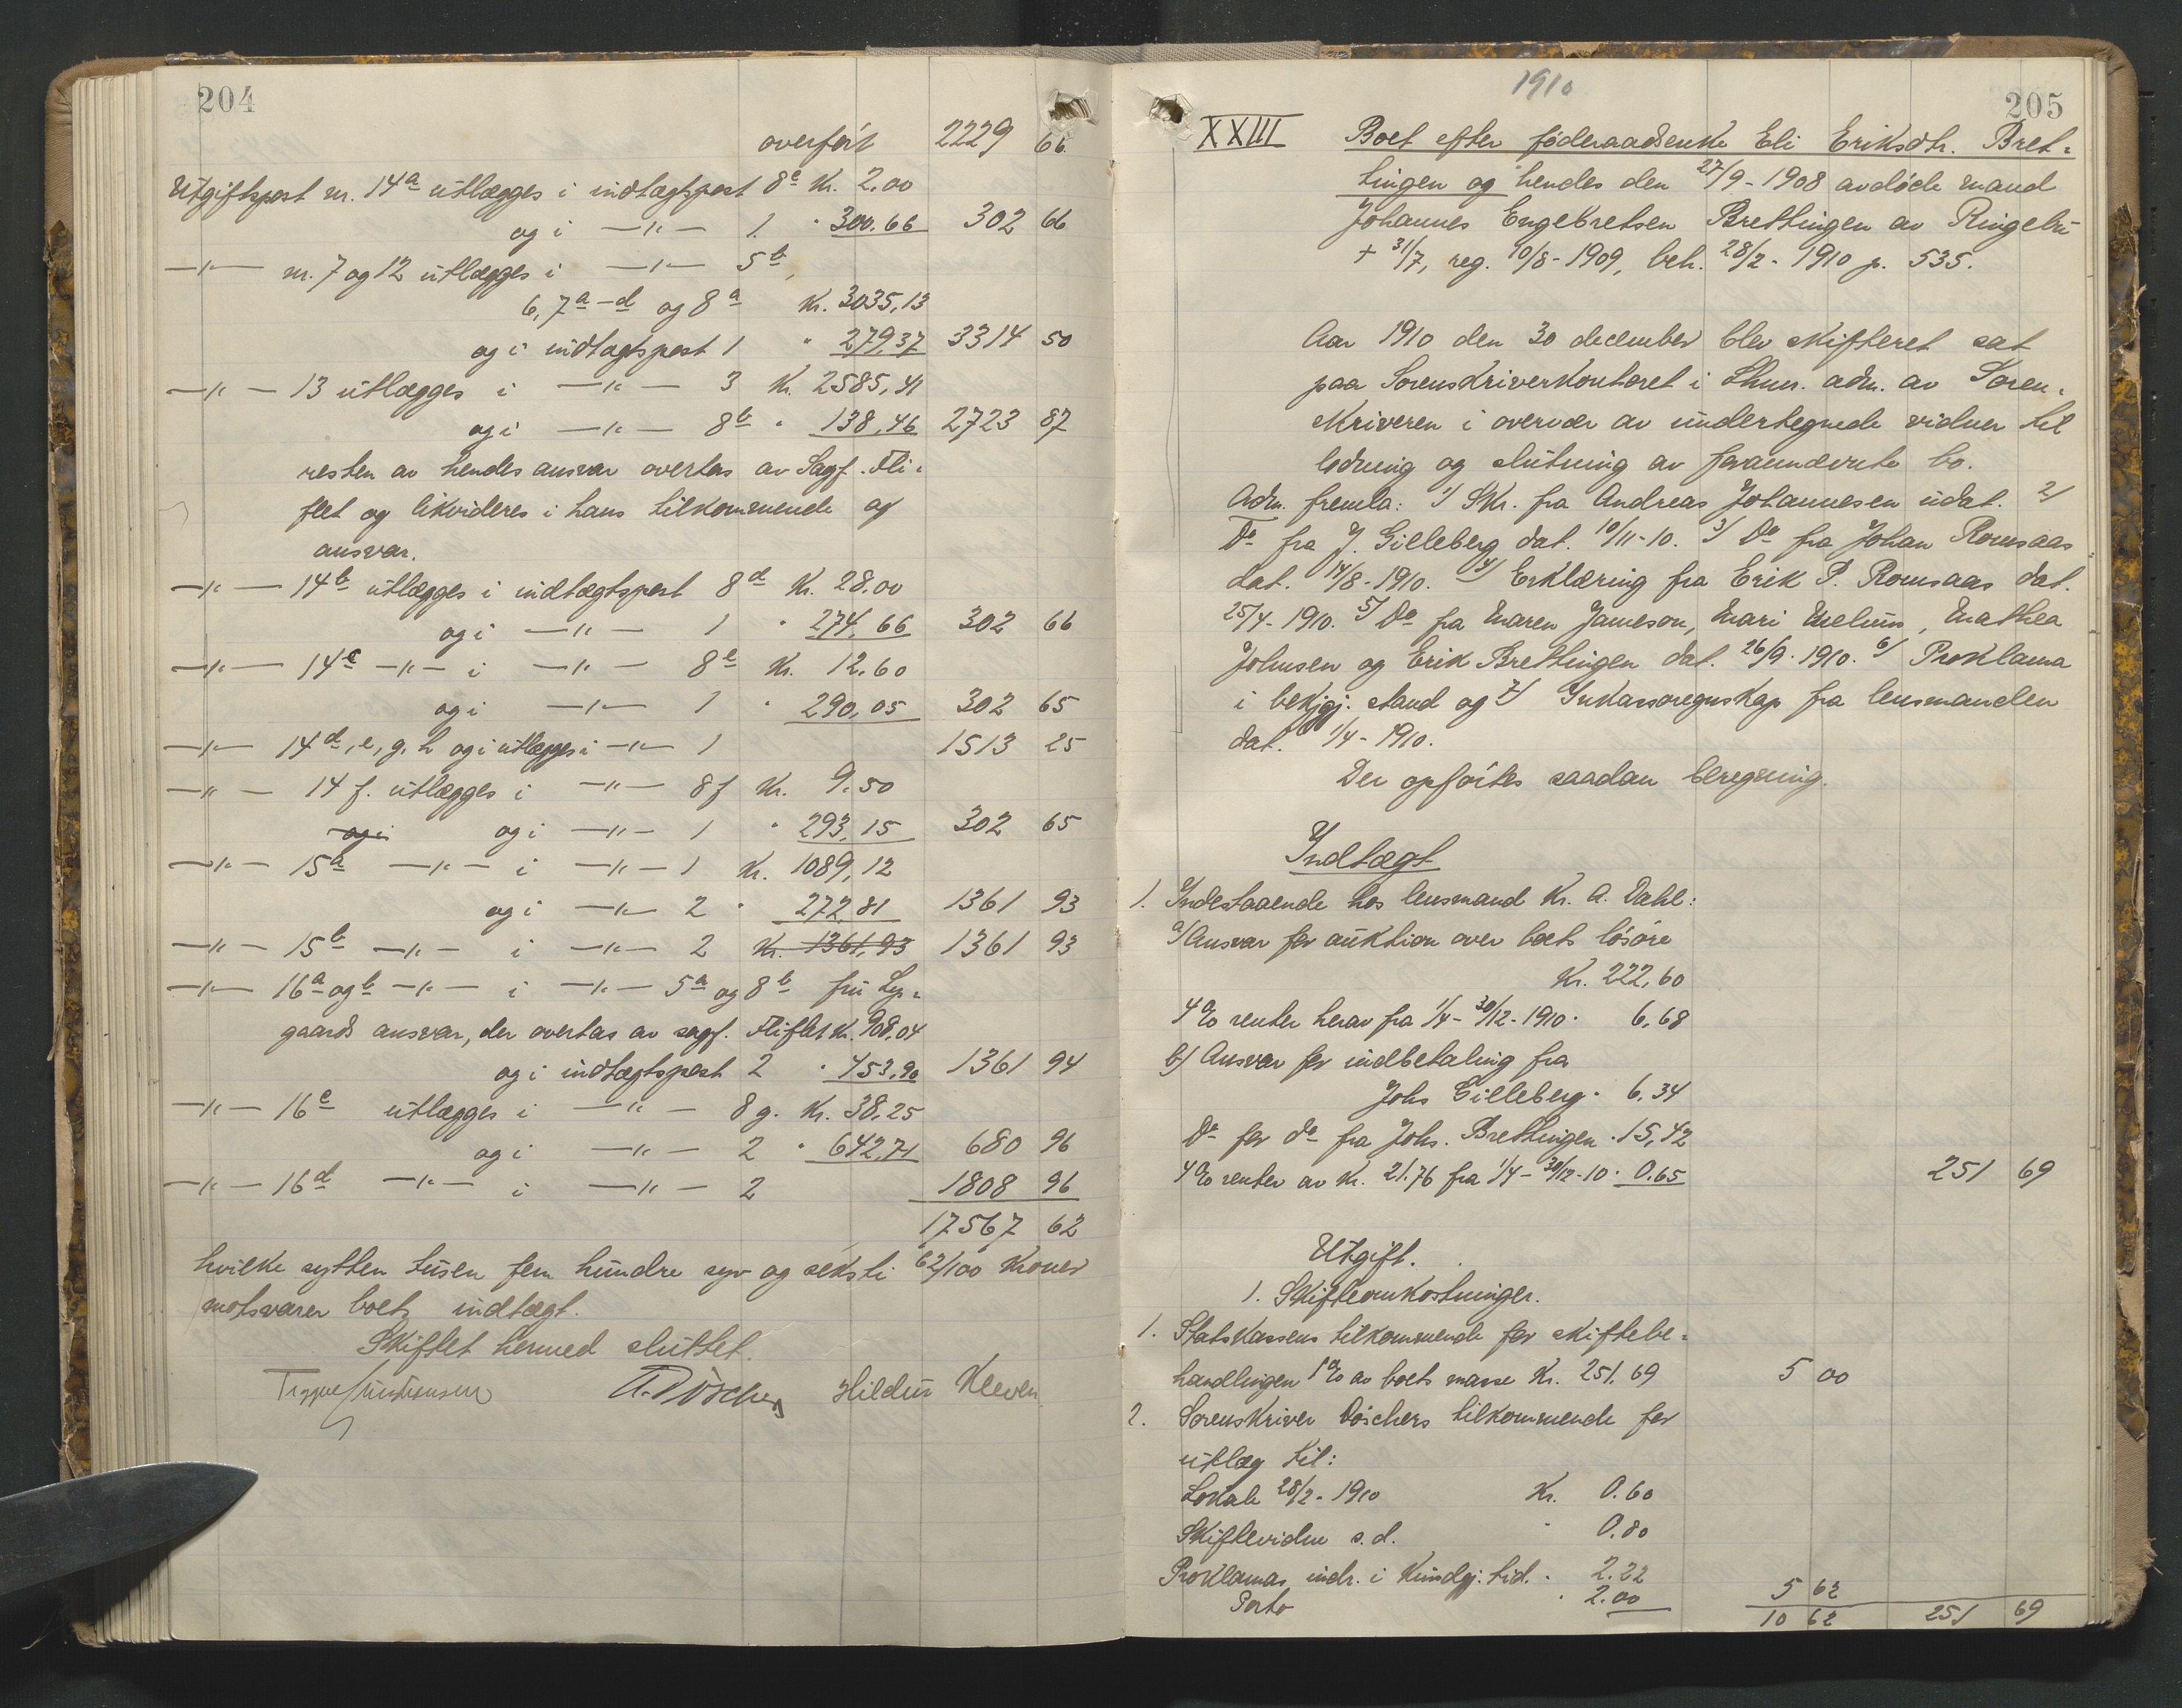 204
overført 2229 66
Utgiftspost nr. 14a utlægges i indtægtspost 8c Kr. 2.00
og i —"— 1. " 300.66 302 66
—"— nr. 7 og 12 utlægges i —"— 5b,
6, 7a-d og 8a Kr. 3035,13
og i indtægtspost 1 " 279,37 3314 50
—"— 13 utlægges i —"— 3 Kr. 2585,41
og i —"— 8b " 138,46 2723 87
resten av hendes ansvar overtas av Sagf. Fli-
flet og likvideres i hans tilkommende og
ansvar.
—"— 14b utlægges i indtægtspost 8d Kr. 28.00
og i —"— 1 " 274,66 302 66
—"— 14c —"— i —"— 8e Kr. 12.60
og i —"— 1 " 290,05 302 65
—"— 14d, e, g, h og i utlægges i —"— 1 1513 25
—"— 14 f. utlægges i —"— 8f Kr. 9.50
og i og i —"— 1 " 293,15 302 65
—"— 15a —"— i —"— 1 Kr. 1089,12
og i —"— 2 " 272,81 1361 93
—"— 15b —"— i —"— 2 Kr. 1361,93 1361 93
—"— 16a og b —"— i —"— 5a og 8b fru Ly-
gaards ansvar, der overtas av sagf. Fliflet Kr. 908,04
og i indtægtspost 2 " 453,90 1361 94
—"— 16c utlægges i —"— 8 g. Kr. 38,25
og i —"— 2 " 642,71 680 96
—"— 16d —"— i —"— 2 1808 96
17567 62
hvilke sytten tusen fem hundre syv og seksti 62/100 Kroner
motsvarer boets indtægt.
Skiftet hermed sluttet.
Trygve Christiansen A. Døscher Hildur Kleven
1910
205
XXIII Boet efter føderaadsenke Eli Eriksdtr. Bret-
tingen og hendes den 27/9-1908 avdøde mand
Johannes Engebretsen Brettingen av Ringebu
+ 31/7, reg. 10/8-1909, beh. 28/2-1910 p. 535.
Aar 1910 den 30 december blev skifteret sat
paa Sorenskriverkontoret i Lhmr. adm. av Soren-
skriveren i overvær av undertegnede vidner til
lodning og slutning av forannævnte bo.
Adm. fremla: 1/ Skr. fra Andreas Johannesen udat. 2/
Do fra J. Gilleberg dat. 10/11-10. 3/ Do fra Johan Romsaas
dat. 14/8-1910. 4/ Erklæring fra Erik P. Romsaas dat.
25/4-1910. 5/ Do fra Maren Jameson, Mari Melum, Mathea
Johnsen og Erik Brettingen dat. 26/9-1910. 6/ Proklama
i bekjgj. stand og 7/ Inkassoregnskap fra lensmanden
dat. 1/4-1910.
Der opførtes saadan beregning.
Indtægt
1. Indestaaende hos lensmand Kr. A. Dahl:
a/ Ansvar for auktion over boets løsøre
Kr. 222,60
4 % renter herav fra 1/4-30/12-1910 " 6,68
b/ Ansvar for indbetaling fra
Johs Gilleberg " 6,34
Do for do fra Johs. Brettingen " 15,42
4 % renter av Kr. 21.76 fra 1/4-30/12-10 " 0.65 251 69
Utgift.
1. Skifteomkostninger.
1. Statskassens tilkommende for skiftebe-
handlingen 1 % av boets masse Kr. 251.69 5 00
2. Sorenskriver Døschers tilkommende for
utlæg til:
Lokale 28/2-1910 Kr. 0.60
Skiftevidne s.d. " 0.80
Proklamas indr. i Kundgj. tid. " 2.22
Porto " 2.00 5 62
10 62 251 69